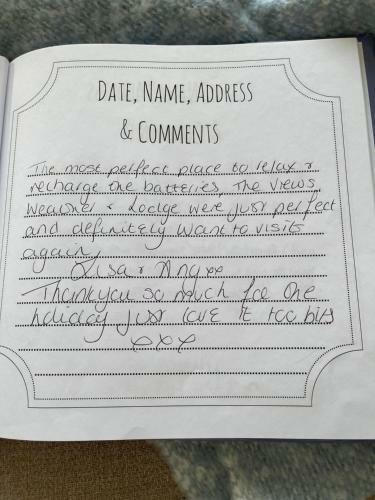 DATE, NAME, ADDRESS
& COMMENTS
The most perfect place to relax &
recharge the batteries, The views,
Weather & Lodge were just perfect
and definitely want to visits
again,
Lisa & Ang xx
Thankyou so much for the
holiday just love it too bits
xxx